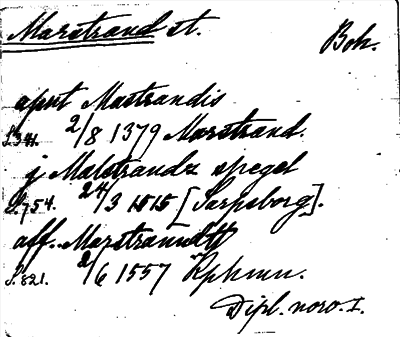 Marstrand st. Boh.
aput Mastrandis
S.341. 2/8 1379 Marstrand.
j Malstrandz spegel
S.754. 24/3 1515 [Sarpsborg].
aff. Marstranndtt
S.821. 2/6 1557 Kphmn.
Dipl. norv. I.